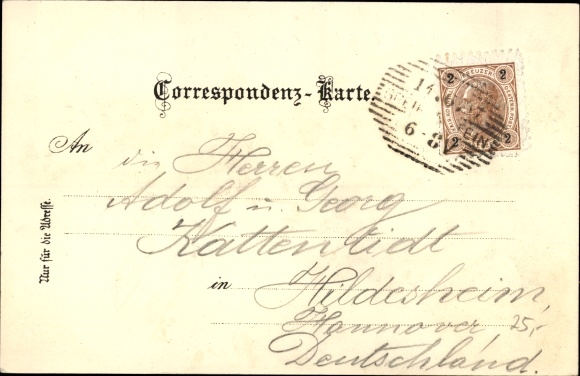 Correspondenz-Karte.
An
die Herren
Adolf u. Georg
Kattentidt
in Hildesheim,
Hannover, 25,-
Deutschland.
Nur für die Adresse.
2 KREUZER 2
2 2
14
6-8